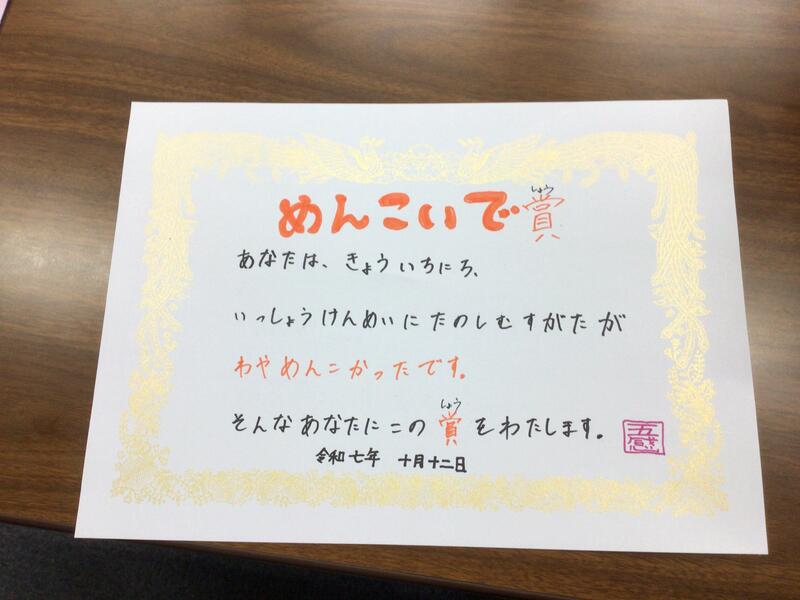 めんこいで賞
しょう
あなたは、きょういちにち、
いっしょうけんめいにたのしむすがたが
わやめんこかったです。
しょう
そんなあなたにこの賞をわたします。
五感
令和七年 十月十二日